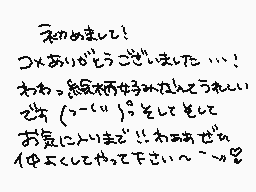 初めまして!
コメありがとうございました…!
わわっ絵柄好みなんてうれしい
です(っーくい)°。そしてそして
お気に入りまで!!わぁあぜひ
仲よくしてやって下さい〜~〜♡